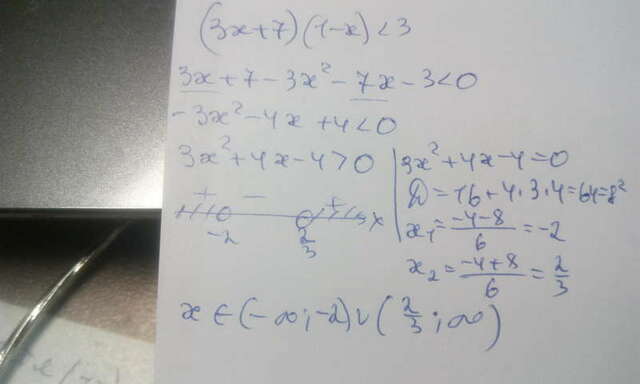 (3x+7)(1-x)<3
3x+7-3x²-7x-3<0
-3x²-4x+4<0
3x²+4x-4>0
+ - +
-2 2/3 x
3x²+4x-4=0
D=16+4·3·4=64=8²
x₁=(-4-8)/6=-2
x₂=(-4+8)/6=2/3
x∈(-∞;-2)∪(2/3;∞)